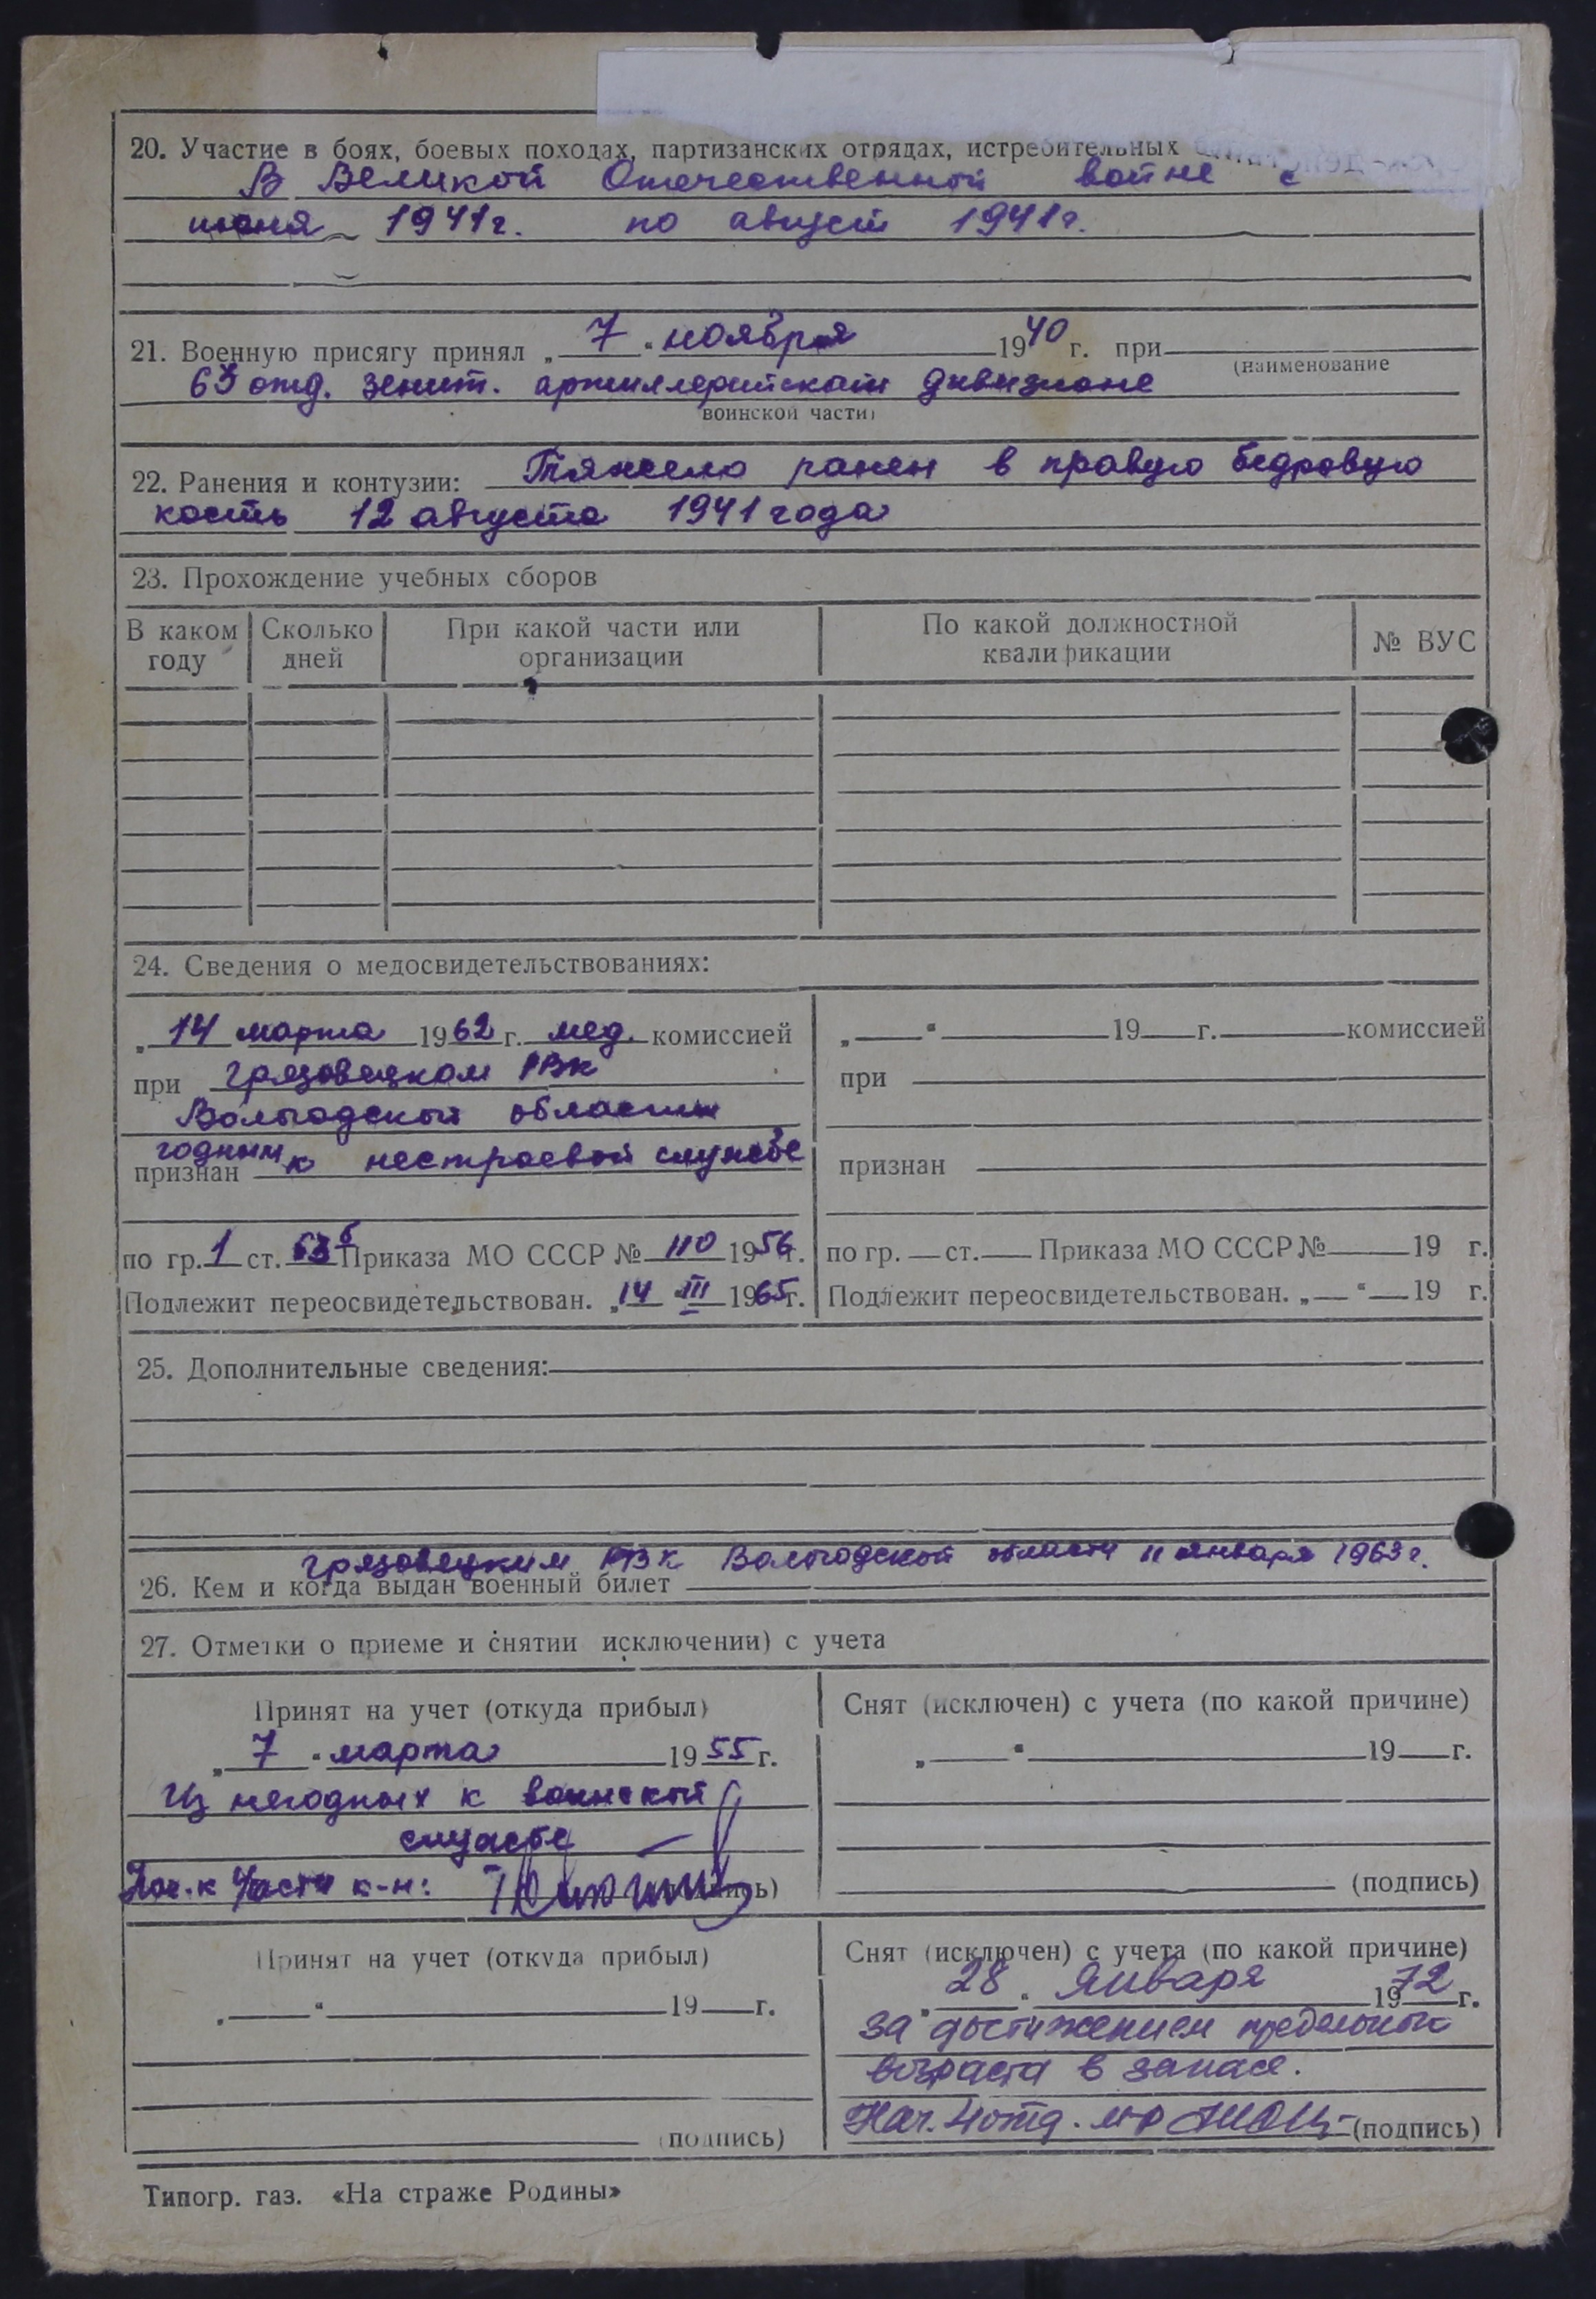 20. Участие в боях, боевых походах, партизанских отрядах, истребительных
В Великой Отечественной войне с
июня 1941г. по август 1941г.
21. Военную присягу принял „7“ ноября 1940 г. при
(наименование
63 отд. зенит. артиллерийском дивизионе
воинской части)
22. Ранения и контузии: Тяжело ранен в правую бедровую
кость 12 августа 1941 года
23. Прохождение учебных сборов
В каком году Сколько дней При какой части или организации По какой должностной квалификации № ВУС
24. Сведения о медосвидетельствованиях:
„14 марта 1962 г. мед. комиссией
при Грязовецком РВК
Вологодской области
годным к нестроевой службе
признан
по гр. 1 ст. 63б Приказа МО СССР № 110 1956г.
Подлежит переосвидетельствован. „14 “ III 1965г.
„ “ 19 г. комиссией
при
признан
по гр. ст. Приказа МО СССР № 19 г.
Подлежит переосвидетельствован. „ “ 19 г.
25. Дополнительные сведения:
Грязовецким РВК Вологодской области 11 января 1963г.
26. Кем и когда выдан военный билет
27. Отметки о приеме и снятии исключении) с учета
Принят на учет (откуда прибыл)
„7“ марта 1955 г.
Из негодных к воинской
службе
Нач-к 4 части к-н: (подпись)
Снят (исключен) с учета (по какой причине)
„ “ 19 г.
(подпись)
Принят на учет (откуда прибыл)
„ “ 19 г.
(подпись)
Снят (исключен) с учета (по какой причине)
„28“ Января 1972 г.
за достижением предельного
возраста в запасе.
Нач. 4 отд. м-р (подпись)
Типогр. газ. «На страже Родины»